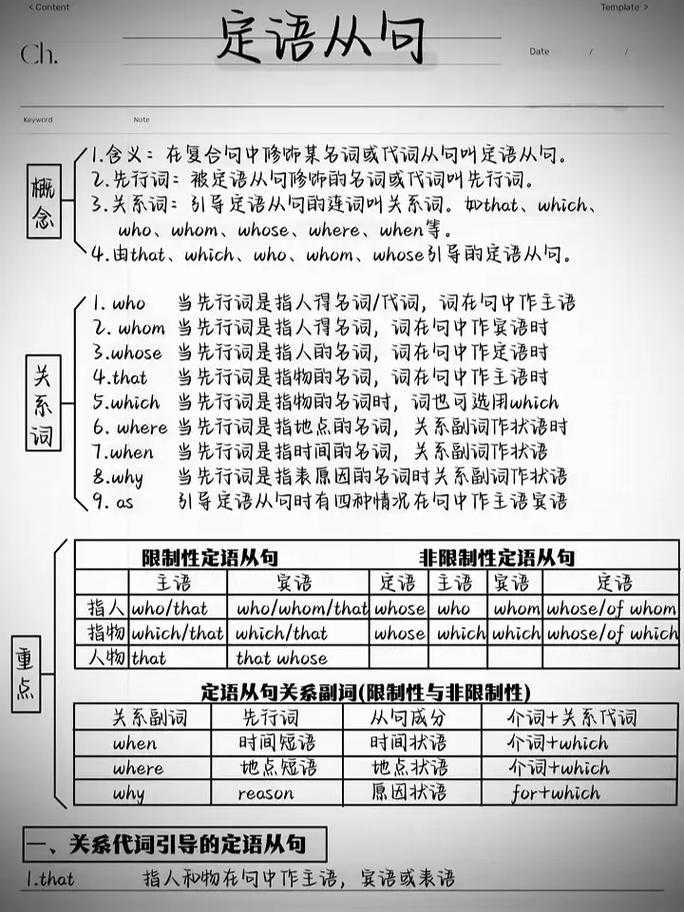 < Content
Template >
定语从句
Ch.
Date / /
Keyword Note
概念
1.含义：在复合句中修饰某名词或代词从句叫定语从句。
2.先行词：被定语从句修饰的名词或代词叫先行词。
3.关系词：引导定语从句的连词叫关系词。如that、which、
who、whom、whose、where、when等。
4.由that、which、who、whom、whose引导的定语从句。
关系词
1. who 当先行词是指人得名词/代词，词在句中作主语
2. whom 当先行词是指人得名词，词在句中作宾语时
3.whose 当先行词是指人的名词，词在句中作定语时
4.that 当先行词是指物的名词，词在句中作主语时
5.which 当先行词是指物的名词时，词也可选用which
6. where 当先行词是指地点的名词，关系副词作状语时
7.when 当先行词是指时间的名词，关系副词作状语
8.why 当先行词是指表原因的名词时关系副词作状语
9. as 引导定语从句时有四种情况在句中作主语宾语
重点
限制性定语从句 非限制性定语从句
主语 宾语 定语 主语 宾语 定语
指人 who/that who/whom/that whose who whom whose/of whom
指物 which/that which/that whose which which whose/of which
人物 that that whose
定语从句关系副词(限制性与非限制性)
关系副词 先行词 从句成分 介词+关系代词
when 时间短语 时间状语 介词+which
where 地点短语 地点状语 介词+which
why reason 原因状语 for+which
一、关系代词引导的定语从句
1.that 指人和物在句中作主语，宾语或表语